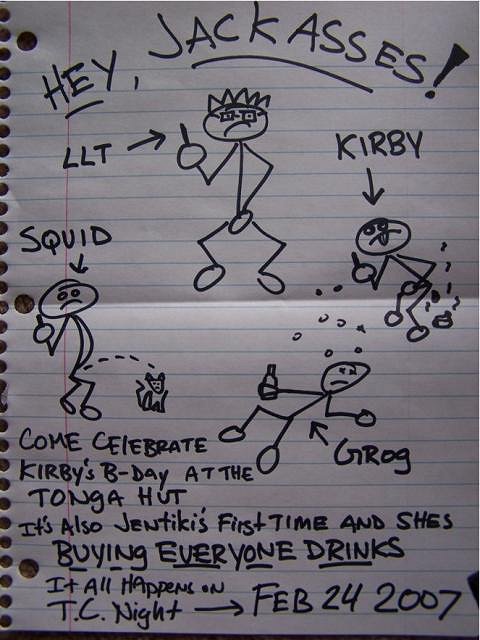 HEY, JACKASSES!
LLT
KIRBY
SQUID
GROG
COME CELEBRATE
KIRBY'S B-DAY AT THE
TONGA HUT
It's Also JENTIKI'S FIRST TIME AND SHES
BUYING EVERYONE DRINKS
It All HAppENS ON
T.C. Night → FEB 24 2007